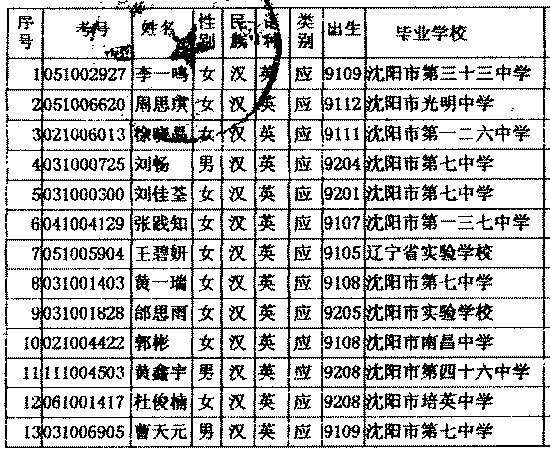 序号 考号 姓名 性别 民族 语种 类别 出生 毕业学校
1 051002927 李一鸣 女 汉 英 应 9109 沈阳市第三十三中学
2 051006620 周思琪 女 汉 英 应 9112 沈阳市光明中学
3 021006013 徐晓晶 女 汉 英 应 9111 沈阳市第一二六中学
4 031000725 刘畅 男 汉 英 应 9204 沈阳市第七中学
5 031000300 刘佳荃 女 汉 英 应 9201 沈阳市第七中学
6 041004129 张践知 女 汉 英 应 9107 沈阳市第一三七中学
7 051005904 王碧妍 女 汉 英 应 9105 辽宁省实验学校
8 031001403 黄一瑞 女 汉 英 应 9108 沈阳市第七中学
9 031001828 邰思雨 女 汉 英 应 9205 沈阳市实验学校
10 021004422 郭彬 女 汉 英 应 9108 沈阳市南昌中学
11 111004503 黄鑫宇 男 汉 英 应 9208 沈阳市第四十六中学
12 061001417 杜俊楠 女 汉 英 应 9208 沈阳市培英中学
13 031006905 曹天元 男 汉 英 应 9109 沈阳市第七中学